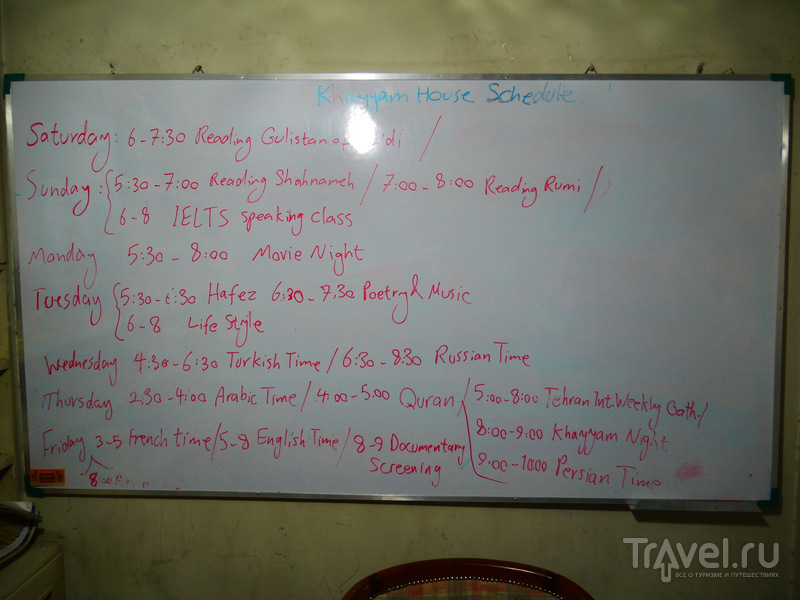 Khayyam House Schedule
Saturday: 6-7:30 Reading Gulistan /
Sunday: 5:30-7:00 Reading Shahnameh / 7:00-8:00 Reading Rumi /
6-8 IELTS speaking class
Monday 5:30-8:00 Movie Night
Tuesday 5:30-6:30 Hafez 6:30-7:30 Poetry & Music
6-8 Life Style
Wednesday 4:30-6:30 Turkish Time / 6:30-8:30 Russian Time
Thursday 2:30-4:00 Arabic Time / 4:00-5:00 Quran
5:00-8:00 Tehran Int. Weekly Gath. /
8:00-9:00 Khayyam Night
9:00-10:00 Persian Time
Friday 3-5 French time / 5-8 English Time / 8-9 Documentary
Screening
8:00
Travel.ru
ВСЕ О ТУРИЗМЕ И ПУТЕШЕСТВИЯХ